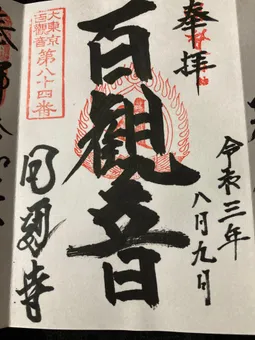 奉拝
令和三年
八月九日
百觀音
大東京
百觀音
第八十四番
寺